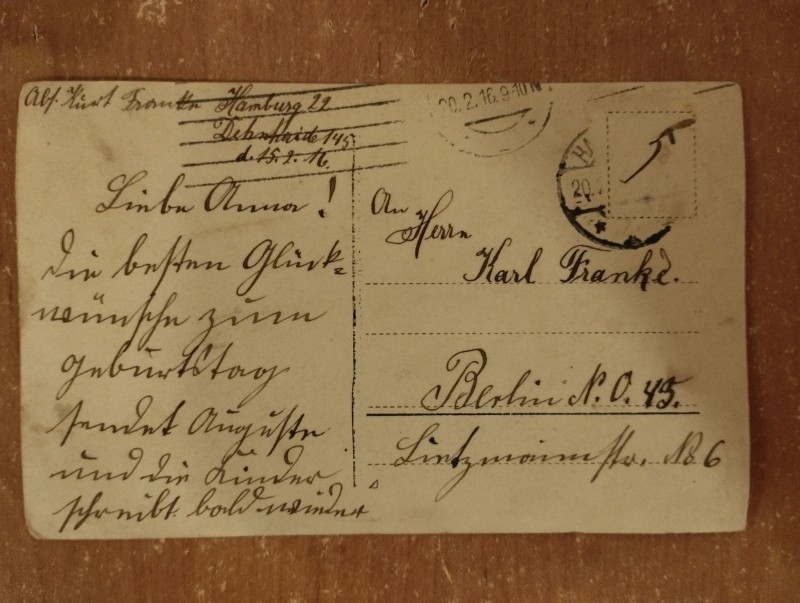 Abs. Kurt Franke Hamburg 22
Dehnhaide 145
d. 15. 2. 16.
20.2.16.9-10 N
Liebe Anna!
Die besten Glück-
wünsche zum
Geburtstag
sendet Auguste
und die Kinder
schreibt bald wieder
An
Herrn
Karl Franke.
Berlin N. O. 43.
Lietzmannstr. No 6